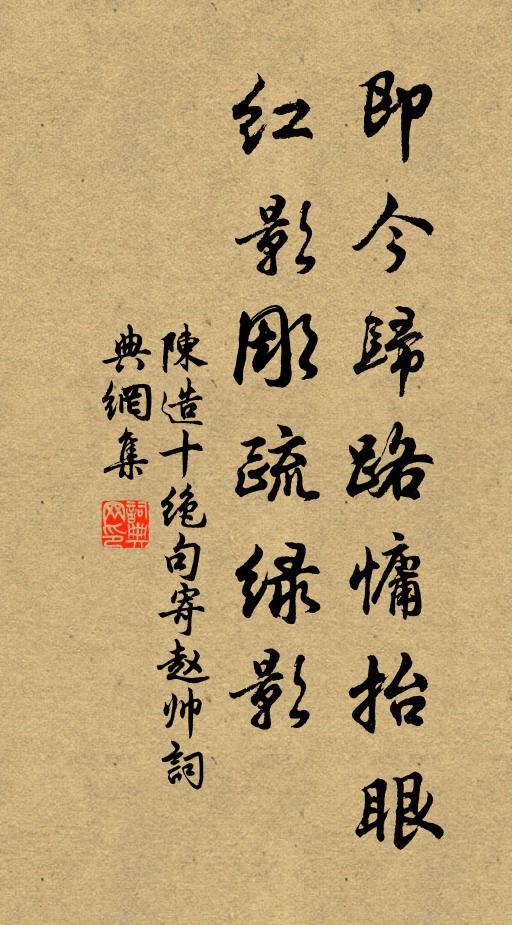 即今歸路慵抬眼
紅影彫疏綠影
陳造十绝句寄赵帅詞
典網集
詞典
网印